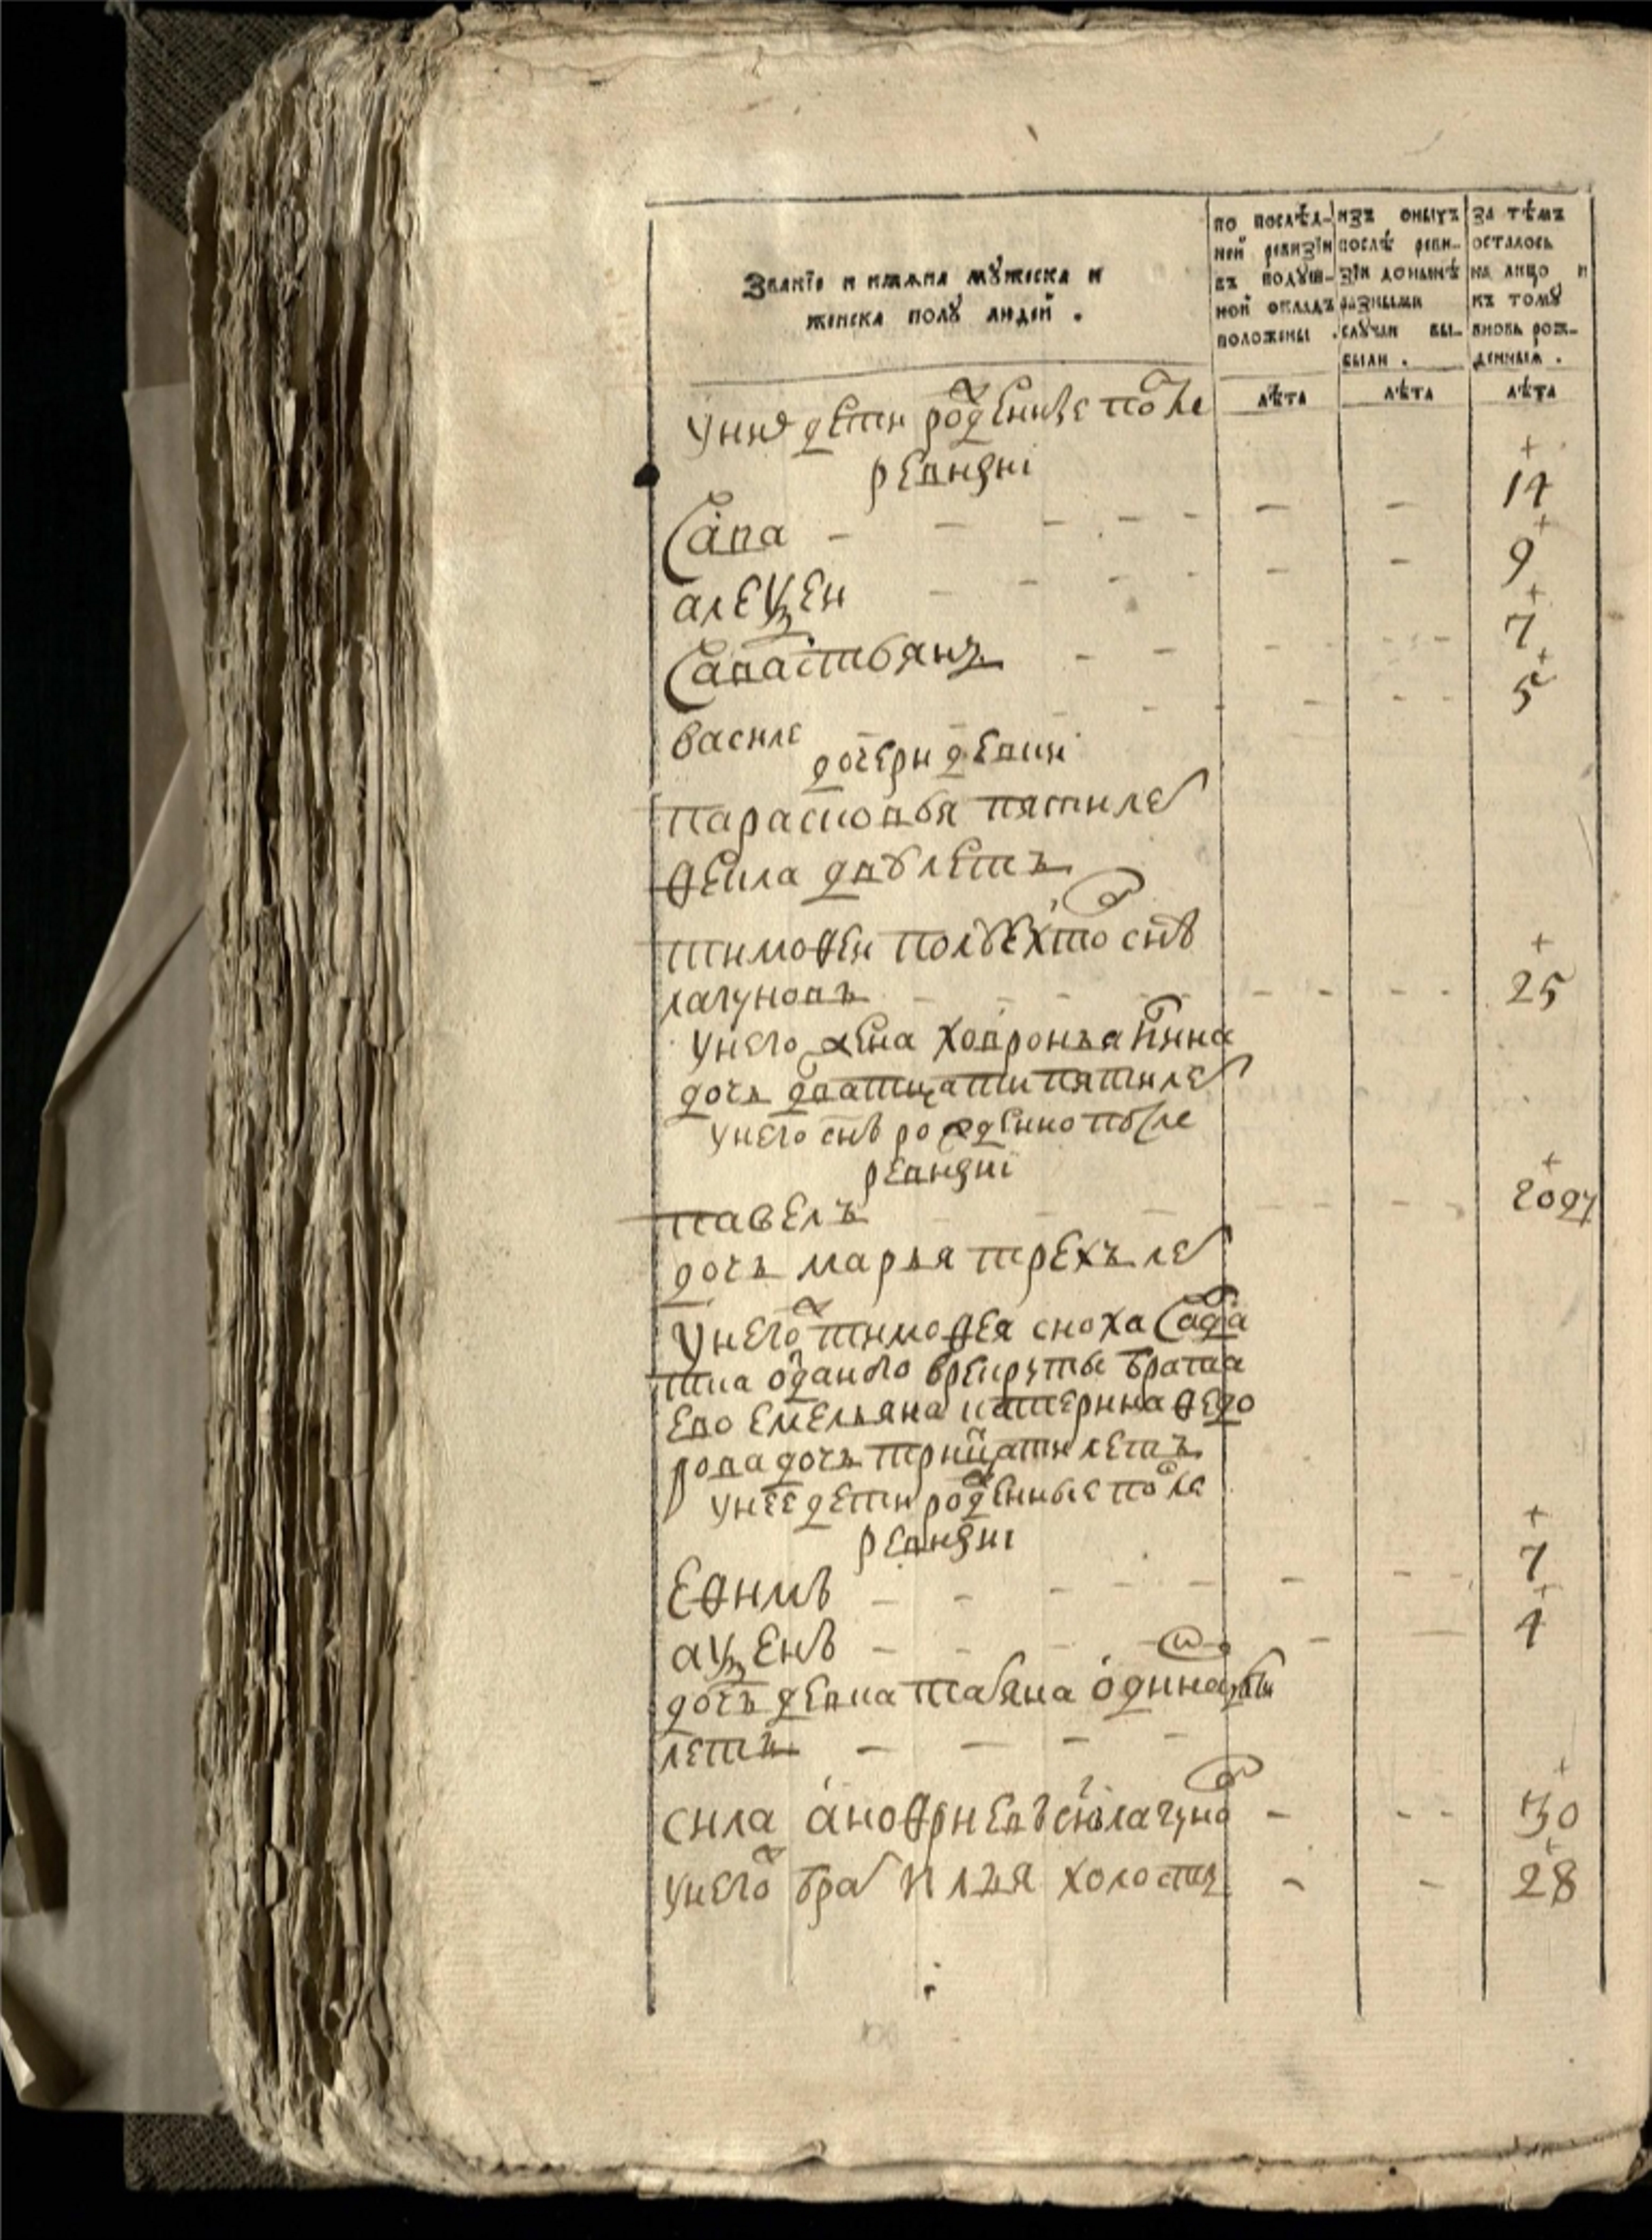 Званїе и имѧна мꙋжеска и
женска полꙋ людей .
по послѣд-
ней ревизїи
въ подꙋш-
ной окладъ
положены .
изъ оныхъ
послѣ реви-
зїи донынѣ
разными
слꙋчаи вы-
были .
за тѣмъ
осталось
на лицо и
къ томꙋ
вновь рож-
денныѧ .
лѣта
лѣта
лѣта
у них дети рожденые после
ревизиі
Сава - - - - - - - 14
алеѯеи - - - - - - 9
Савастьянъ - - - - - 7
василе - - - - - - 5
дочери девки
парасковья пяти лет
ѳекла двѣ летъ
тимоѳеи ѳто снъ
лагуновъ - - - - - - 25
у него жена ховронья
дочь дватцати пяти лет
у него снъ рожденно после
ревизиі
павелъ - - - - - году
дочь марья трехъ лет
у него ж тимоѳея сноха салда
тка отданого в рекруты брата
ево емельяна катерина ѳедо
рова дочь трицати летъ
у нее дети рожденные после
ревизиі
Еѳимъ - - - - - - 7
аѯенъ - - - - - 4
дочь девка татяна одинацати
летъ - - - -
сила аноѳриевъ снъ лагунов - - - 30
у него ж брат илья холостъ - - 28